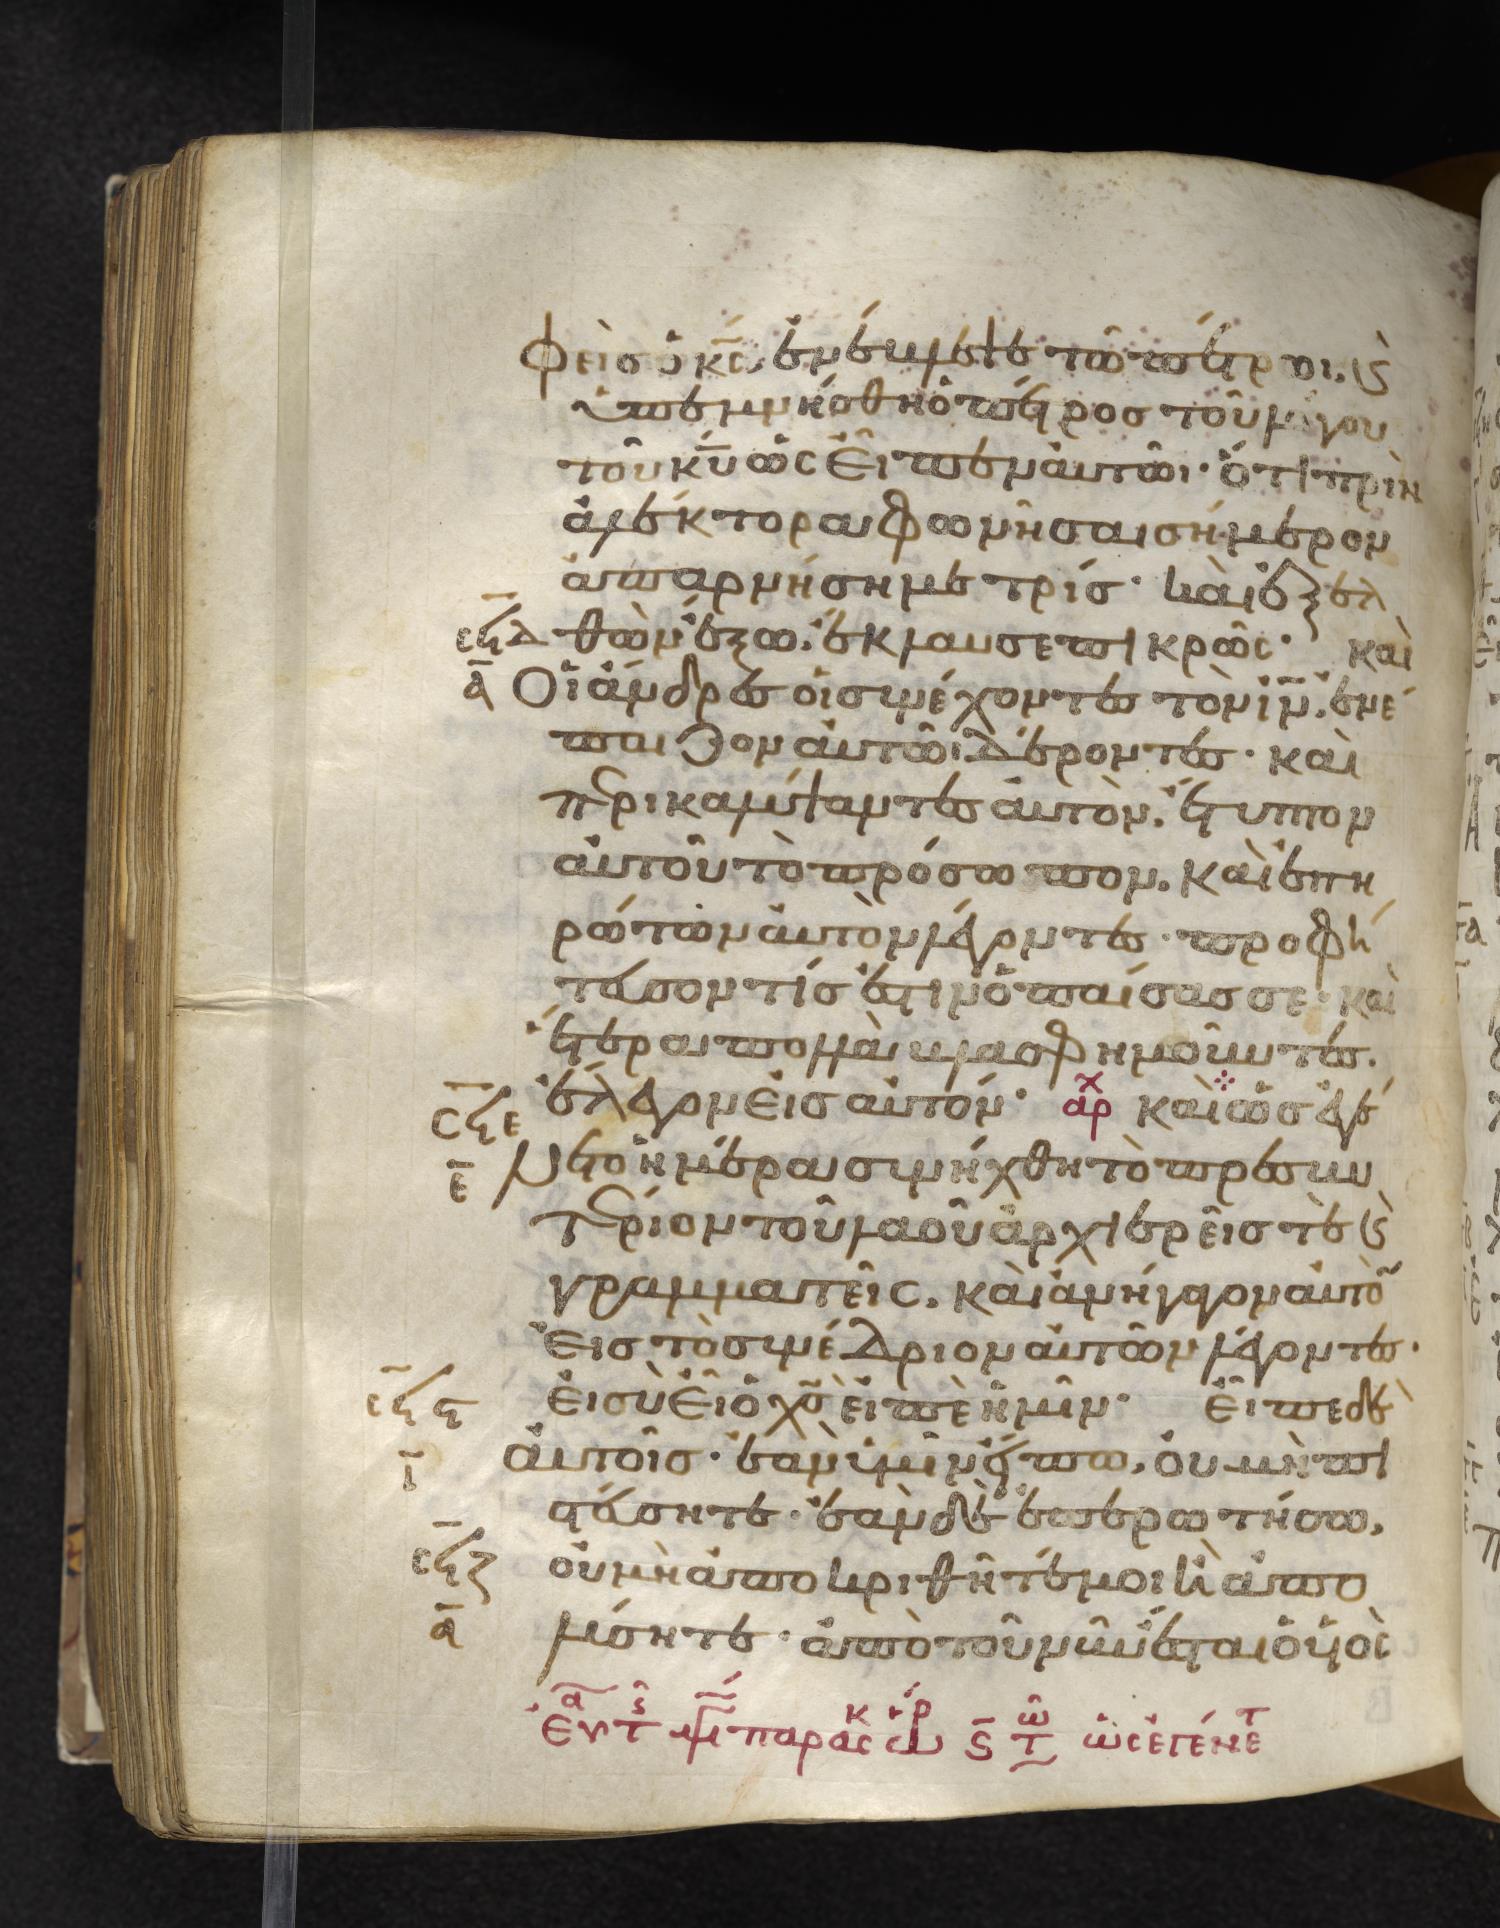 φεὶσ ὁ κ̅ς̅ ἐνέβλεψε τῶ πέτρωι. (καὶ)
ὑπεμνήσθη ὁ πέτροσ τοῦ λόγου
τοῦ κ̅υ̅ ὡς εἶπεν αὐτῶι· ὅτι πρὶν
ἀλέκτορα φωνῆσαι σήμερον
ἀπαρνήση με τρίσ· καὶ ἐξελ
σ̅ξ̅δ̅ θὼν ἔξω. ἔκλαυσε πικρῶς· καὶ
α̅ Οἱ ἄνδρεσ οἱ συνέχοντεσ τὸν ι̅ν̅. ἐνέ
παιζον αὐτῶι δέροντεσ· καὶ
περικαλύψαντεσ αὐτὸν. ἔτυπτον
αὐτοῦ τὸ πρόσωπον. καὶ ἐπη
ρώτων αὐτὸν λέγοντεσ· προφή
τευσον τίσ ἐστιν ὁ παίσασ σε· καὶ
ἕτερα πολλὰ βλασφημοῦντεσ.
ἔλεγον εἰσ αὐτόν· ἀρχ καὶ ὡσ ἐγέ
σ̅ξ̅ε̅
ε̅ νετο ἡμέρα συνήχθη τὸ πρεσβυ
τέριον τοῦ λαοῦ ἀρχιερεῖσ τὲ (καὶ)
γραμματεῖς. καὶ ἀνήγαγον αὐτὸ̅
εἰσ τὸ συνέδριον αὐτῶν λέγοντεσ·
σ̅ξ̅ϛ̅ εἰ σὺ εἶ ὁ χ̅σ̅ εἰπὲ ἡμῖν· εἶπε δὲ
ι̅ αὐτοῖσ· ἐὰν ὑμῖν εἴπω, οὐ μὴ πι
στεύσητε· ἐὰν δὲ ἐπερωτήσω,
σ̅ξ̅ζ̅ οὐ μὴ ἀποκριθῆτέ μοι ἢ ἀπο
α̅ λύσητε· ἀπὸ τοῦ νῦν ἔσται ὁ υἱὸς